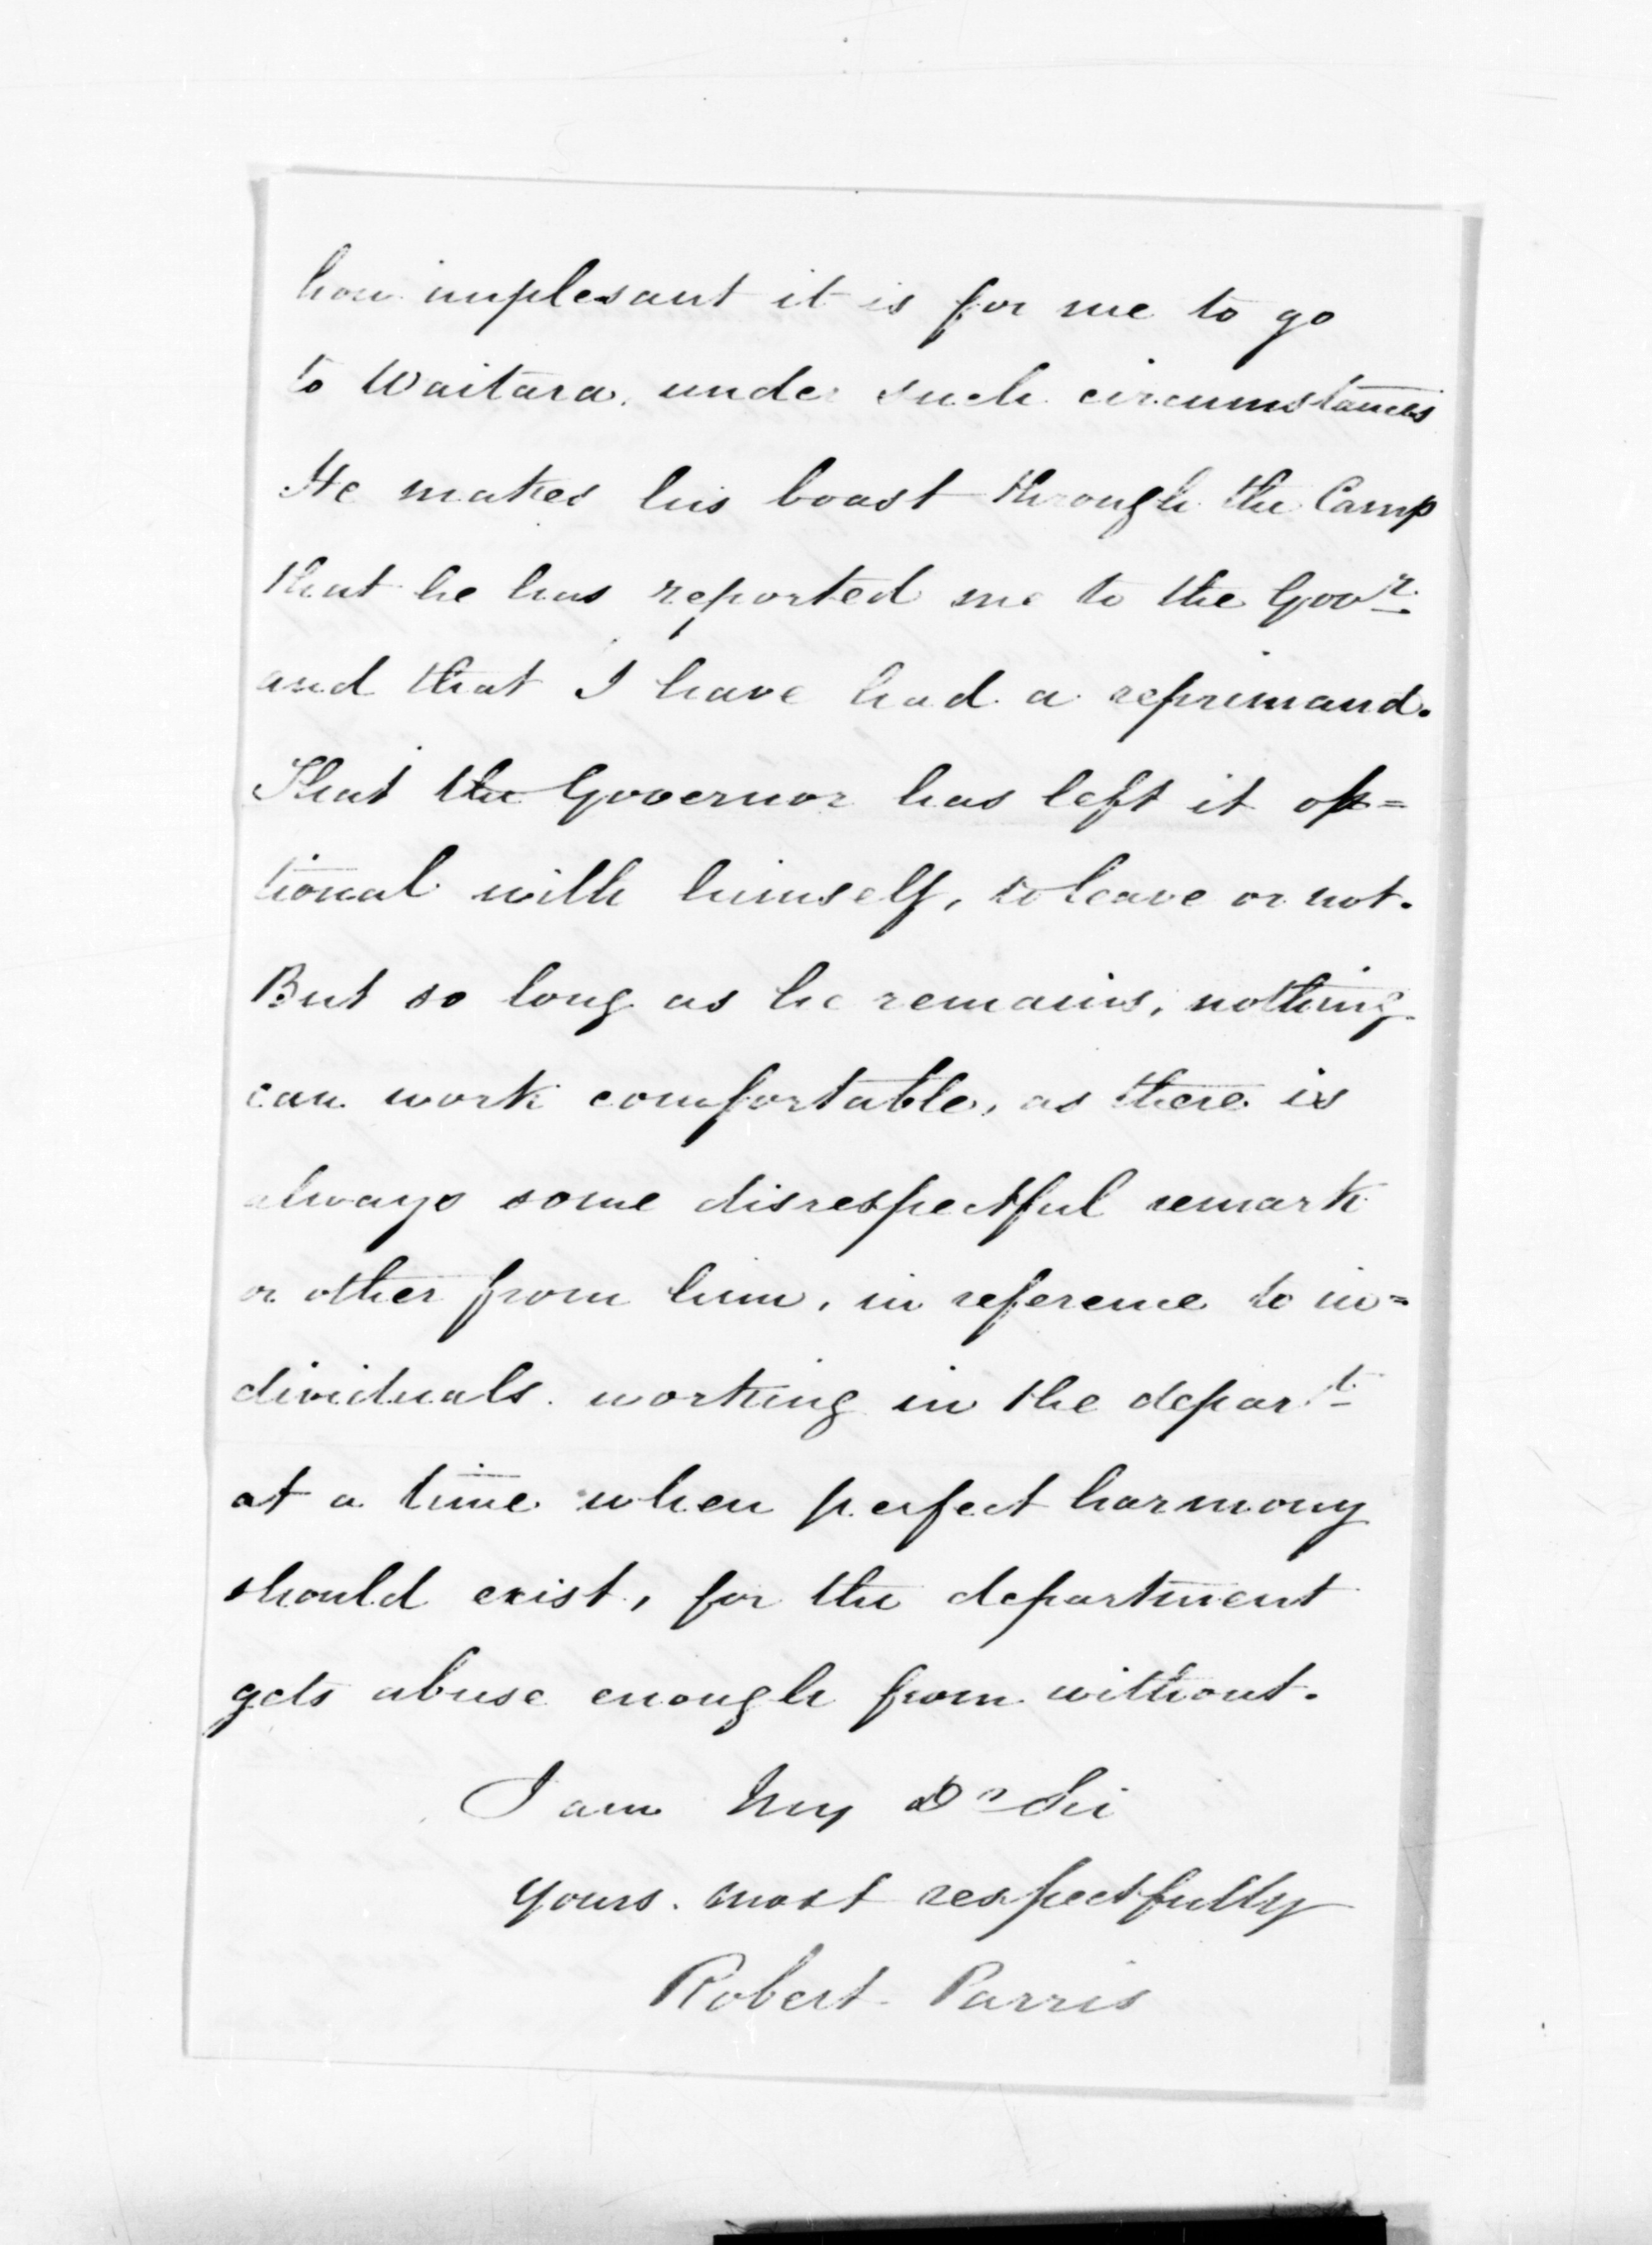 how unplesant it is for me to go
to Waitara under such circumstances
He makes his boast through the Camp
that he has reported me to the Govr.
and that I have had a reprimand.
That the Governor has left it op=
tional with himself, to leave or not.
But so long as he remains, nothing
can work comfortable, as there is
always some disrespectful remark
or other from him, in reference to in=
dividuals working in the depart
at a time when perfect harmony
should exist, for the department
gets abuse enough from without.
I am My Dr Sir
yours most respectfully
Robert Parris